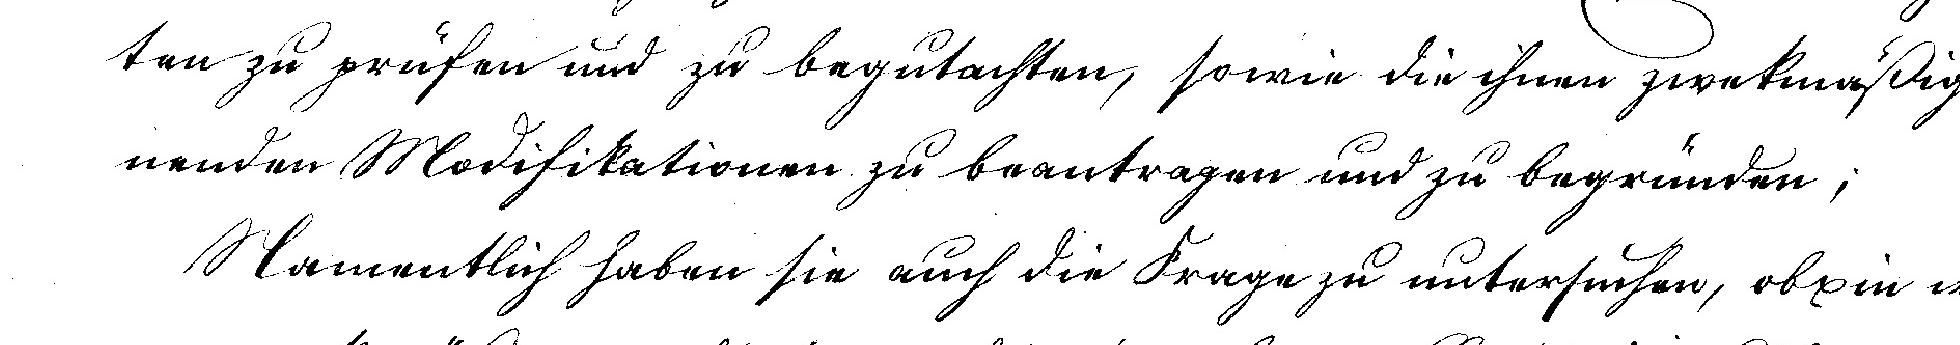 ten zu prüfen und zu begutachten, sowie die ihnen zwekmäßig
nenden Modifikationen zu beantragen und zu begründen;
Namentlich haben sie auch die Frage zu untersuchen, ob